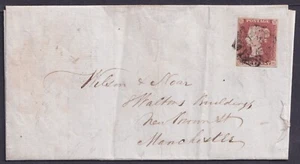 Wilson &
Waltons Buildings
New Brown St
Manchester